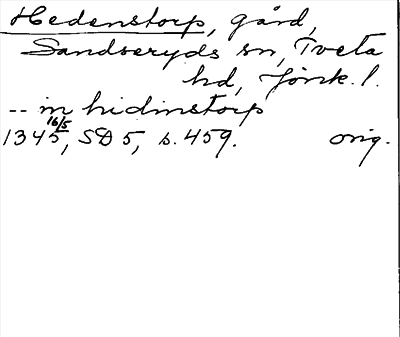 Hedenstorp, gård,
Sandseryds sn, Tveta
hd, Jönk. l.
-- in hidinstorp
16/5
1345, SD 5, s. 459. orig.